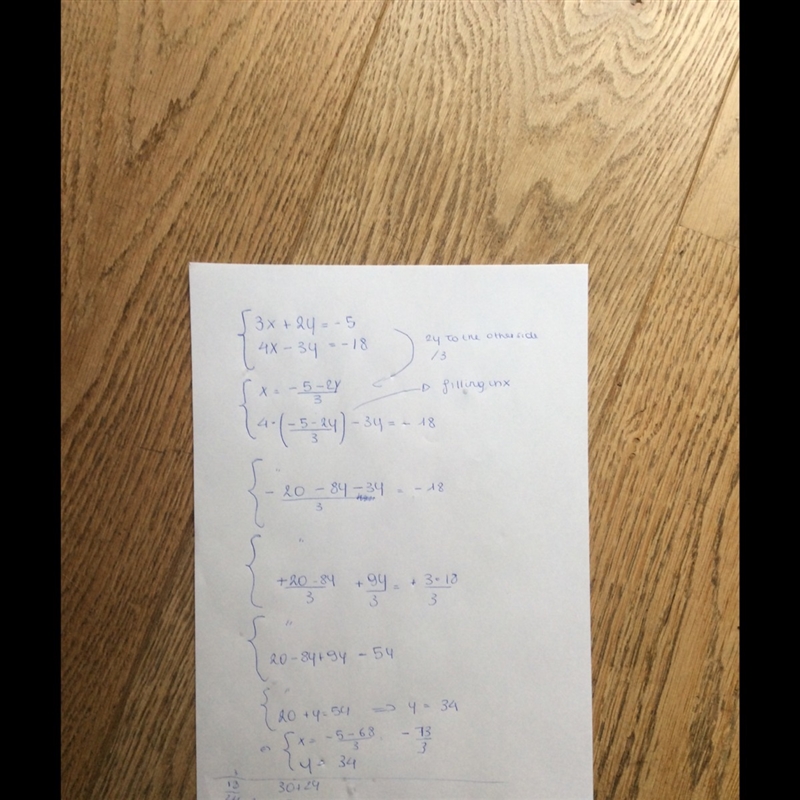 3x + 2y = -5
4x - 3y = -18
2y to the other side
/3
x = -5-2y/3
filling in x
4·(-5-2y/3) - 3y = -18
"
-20 - 8y - 3y/3 = -18
"
+20-8y/3 + 9y/3 = + 3·18/3
"
20-8y+9y - 54
"
20 + y = 54 => y = 34
x = -5-68/3 -73/3
y = 34
30+24